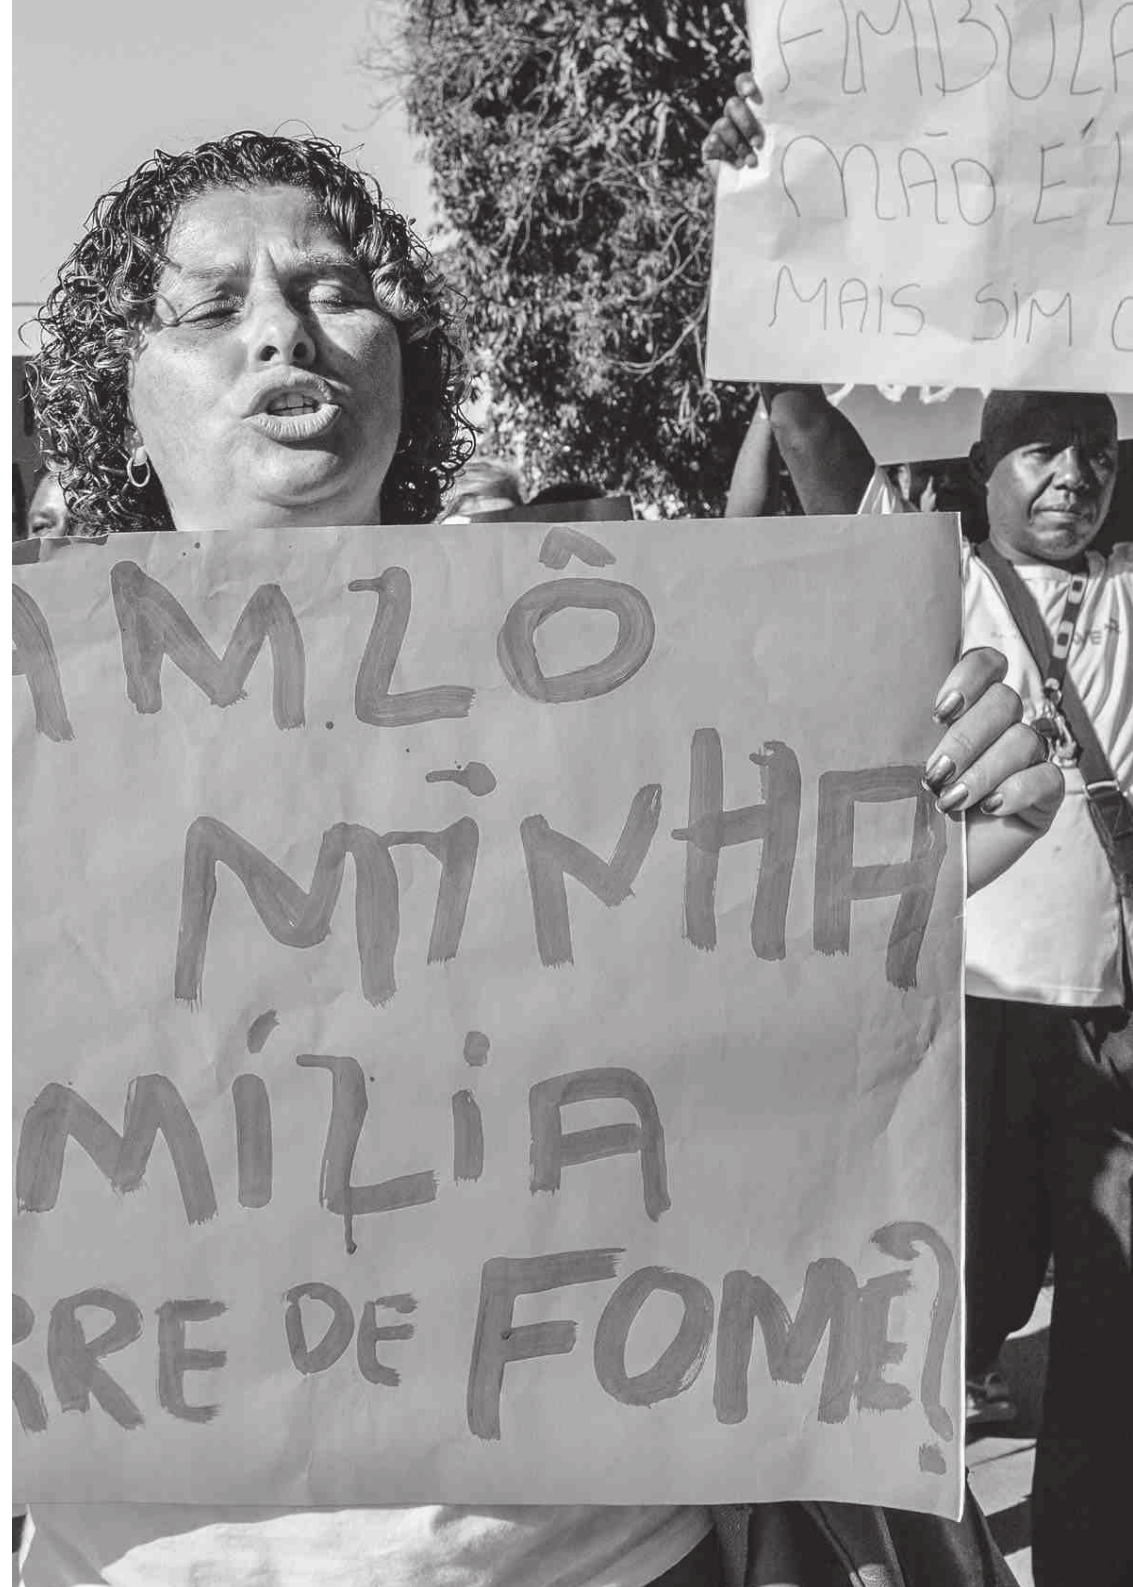 AMBULA
NÃO É L
MAIS SIM C
AMLÔ
MINHA
MÍLIA
RRE DE FOME?